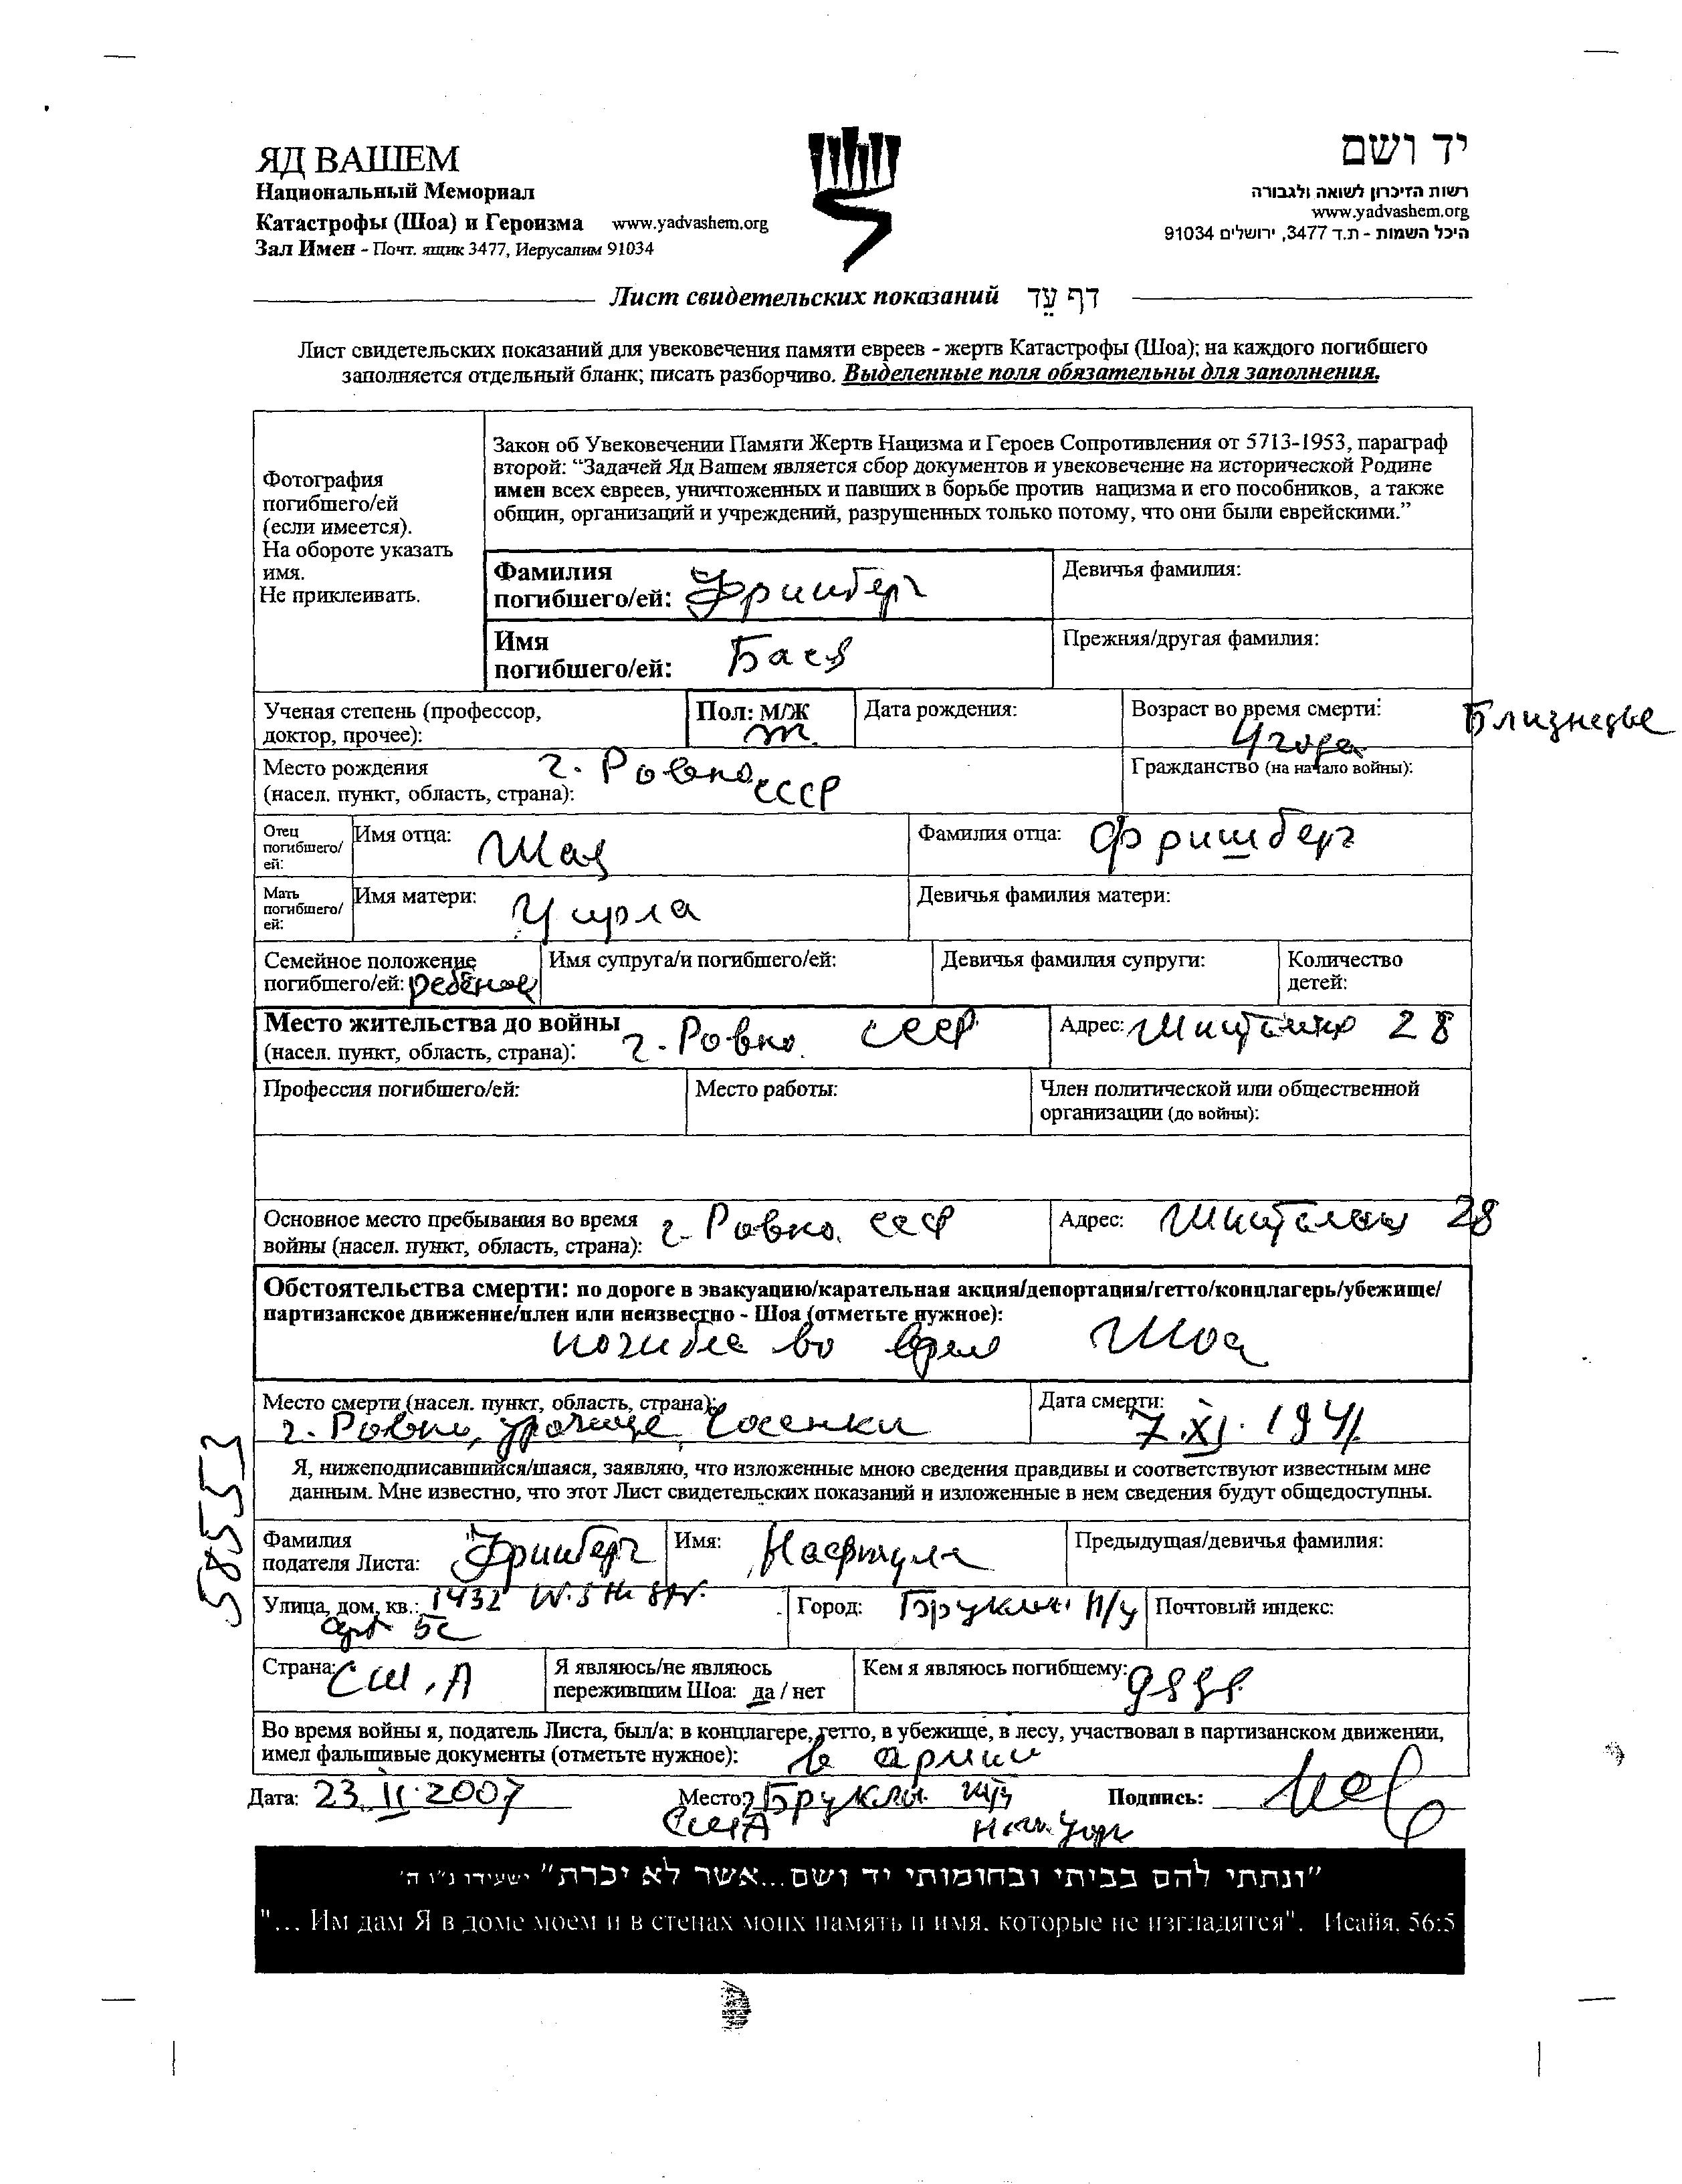 ЯД ВАШЕМ
Национальный Мемориал
Катастрофы (Шоа) и Героизма www.yadvashem.org
Зал Имен - Почт. ящик 3477, Иерусалим 91034
יד ושם
רשות הזיכרון לשואה ולגבורה
www.yadvashem.org
היכל השמות - ת.ד 3477, ירושלים 91034
Лист свидетельских показаний דף עֵד
Лист свидетельских показаний для увековечения памяти евреев - жертв Катастрофы (Шоа); на каждого погибшего
заполняется отдельный бланк; писать разборчиво. Выделенные поля обязательны для заполнения.
Фотография
погибшего/ей
(если имеется).
На обороте указать
имя.
Не приклеивать.
Закон об Увековечении Памяти Жертв Нацизма и Героев Сопротивления от 5713-1953, параграф
второй: “Задачей Яд Вашем является сбор документов и увековечение на исторической Родине
имен всех евреев, уничтоженных и павших в борьбе против нацизма и его пособников, а также
общин, организаций и учреждений, разрушенных только потому, что они были еврейскими.”
Фамилия
погибшего/ей: Фришберг
Девичья фамилия:
Имя
погибшего/ей: Бася
Прежняя/другая фамилия:
Ученая степень (профессор,
доктор, прочее):
Пол: М/Ж
Дата рождения:
Возраст во время смерти:
4 года
Близнецы
Место рождения г. Ровно
(насел. пункт, область, страна): СССР
Гражданство (на начало войны):
Отец
погибшего/
ей:
Имя отца: Шая
Фамилия отца: Фришберг
Мать
погибшего/
ей:
Имя матери: Цирла
Девичья фамилия матери:
Семейное положение
погибшего/ей: ребенок
Имя супруга/и погибшего/ей:
Девичья фамилия супруги:
Количество
детей:
Место жительства до войны
(насел. пункт, область, страна): г. Ровно СССР
Адрес: 28
Профессия погибшего/ей:
Место работы:
Член политической или общественной
организации (до войны):
Основное место пребывания во время г. Ровно. СССР
войны (насел. пункт, область, страна):
Адрес: 28
Обстоятельства смерти: по дороге в эвакуацию/карательная акция/депортация/гетто/концлагерь/убежище/
партизанское движение/плен или неизвестно - Шоа (отметьте нужное):
погибла во время Шоа
Место смерти (насел. пункт, область, страна):
г. Ровно, урочище Сосенки
Дата смерти:
7.XI.1941
58553
Я, нижеподписавшийся/шаяся, заявляю, что изложенные мною сведения правдивы и соответствуют известным мне
данным. Мне известно, что этот Лист свидетельских показаний и изложенные в нем сведения будут общедоступны.
Фамилия
подателя Листа: Фришберг
Имя: Нафтула
Предыдущая/девичья фамилия:
Улица, дом, кв.: 1432 W.5th Str.
apt 5c
Город: Бруклин Н/у
Почтовый индекс:
Страна: США
Я являюсь/не являюсь
пережившим Шоа: да / нет
Кем я являюсь погибшему: дядя
Во время войны я, податель Листа, был/а: в концлагере, гетто, в убежище, в лесу, участвовал в партизанском движении,
имел фальшивые документы (отметьте нужное): в армии
Дата: 23.II.2007
Место: Бруклин
США
Подпись:
"ונתתי להם בביתי ובחומותי יד ושם...אשר לא יכרת" ישעיהו נ"ו ה'
"... Им дам Я в доме моем и в стенах моих память и имя, которые не изгладятся". Исайя, 56:5